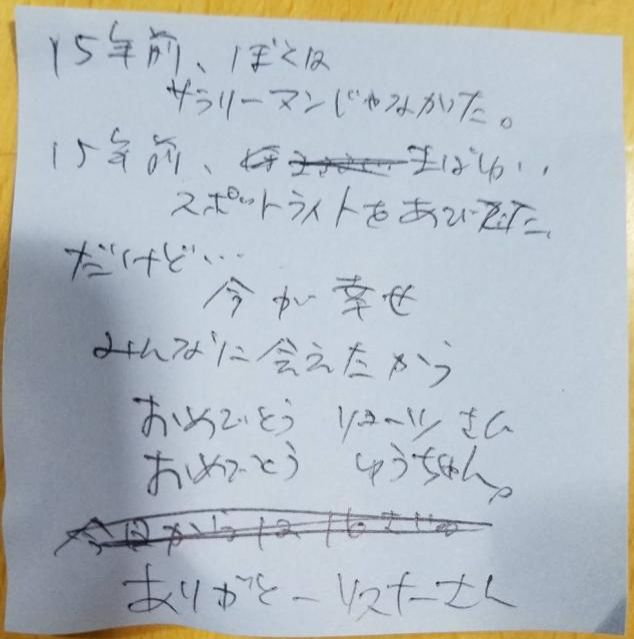 15年前、ぼくは
サラリーマンじゃなかった。
15年前、まばゆい
スポットライトをあびてた
だけど…
今が幸せ
みんなに会えたから
おめでとう リューツさん
おめでとう ゆうちゃん。
ありがとーリスナーさん